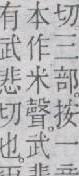 切三部。按一
本作米聲。武
有武悲切也。